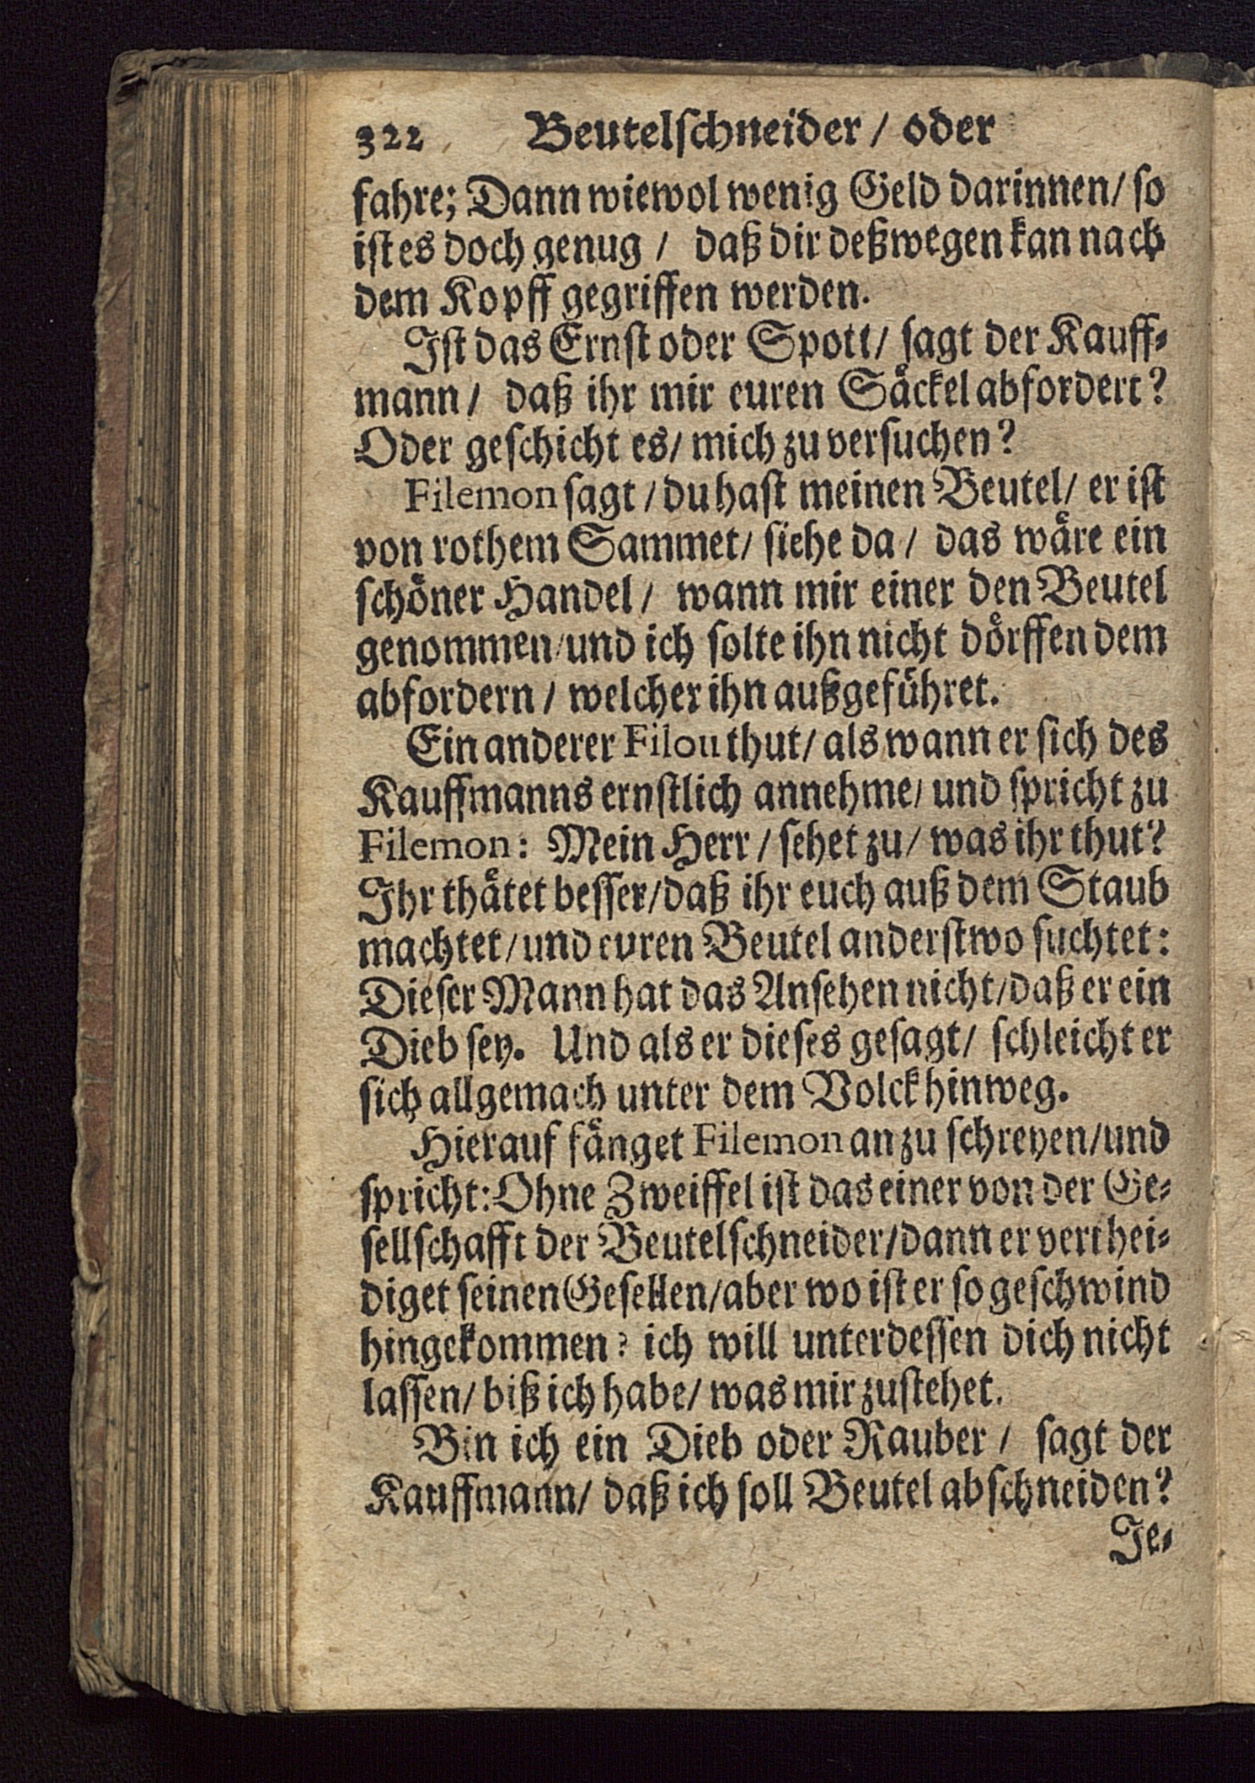 322 Beutelſchneider / oder
fahre; Dann wiewol wenig Geld darinnen / ſo
iſt es doch genug / daß dir deßwegen kan nach
dem Kopff gegriffen werden.
Iſt das Ernſt oder Spott / ſagt der Kauff-
mann / daß ihr mir euren Säckel abfordert?
Oder geſchicht es / mich zu verſuchen?
Filemon ſagt / du haſt meinen Beutel / er iſt
von rothem Sammet / ſiehe da / das wäre ein
ſchöner Handel / wann mir einer den Beutel
genommen / und ich ſolte ihn nicht dörffen dem
abfordern / welcher ihn außgeführet.
Ein anderer Filou thut / als wann er ſich des
Kauffmanns ernſtlich annehme / und ſpricht zu
Filemon: Mein Herr / ſehet zu / was ihr thut?
Ihr thätet beſſer / daß ihr euch auß dem Staub
machtet / und euren Beutel anderſtwo ſuchtet:
Dieſer Mann hat das Anſehen nicht / daß er ein
Dieb ſey. Und als er dieſes geſagt / ſchleicht er
ſich allgemach unter dem Volck hinweg.
Hierauf fänget Filemon an zu ſchreyen / und
ſpricht: Ohne Zweiffel iſt das einer von der Ge-
ſellſchafft der Beutelſchneider / dann er verthei-
diget ſeinen Geſellen / aber wo iſt er ſo geſchwind
hingekommen? ich will unterdeſſen dich nicht
laſſen / biß ich habe / was mir zuſtehet.
Bin ich ein Dieb oder Rauber / ſagt der
Kauffmann / daß ich ſoll Beutel abſchneiden?
Je-